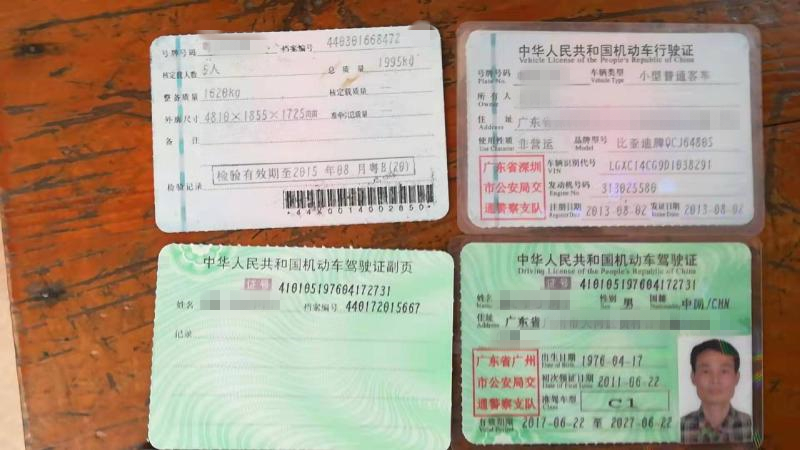 号牌号码 档案编号 440301668472
核定载人数 5人 总质量 1995kg
整备质量 1620kg 核定载质量
外廓尺寸 4810×1855×1725 准牵引总质量
备注
检验有效期至2015 年08 月粤B(20)
检验记录
中华人民共和国机动车行驶证
Vehicle License of the People's Republic of China
号牌号码 车辆类型 小型普通客车
Plate No. Vehicle Type
所有人
Owner
住址 广东省
Address
使用性质 非营运 品牌型号 比亚迪牌QCJ6480S
Use Character Model
广东省深圳市公安局交通警察支队
车辆识别代号 LGXC14CG9D1038291
VIN
发动机号码 313025580
Engine No.
注册日期 2013-08-02 发证日期 2013-08-02
Register Date Issue Date
中华人民共和国机动车驾驶证副页
证号 410105197604172731
姓名 档案编号 440172015667
记录
中华人民共和国机动车驾驶证
Driving License of the People's Republic of China
证号 410105197604172731
姓名 性别 男 国籍 中国/CHN
Name Sex
住址 广东省
Address
广东省广州市公安局交通警察支队
出生日期 1976-04-17
Date of Birth
初次领证日期 2011-06-22
Date of First Issue
准驾车型 C1
Class
有效期限 2017-06-22 至 2027-06-22
Valid Period